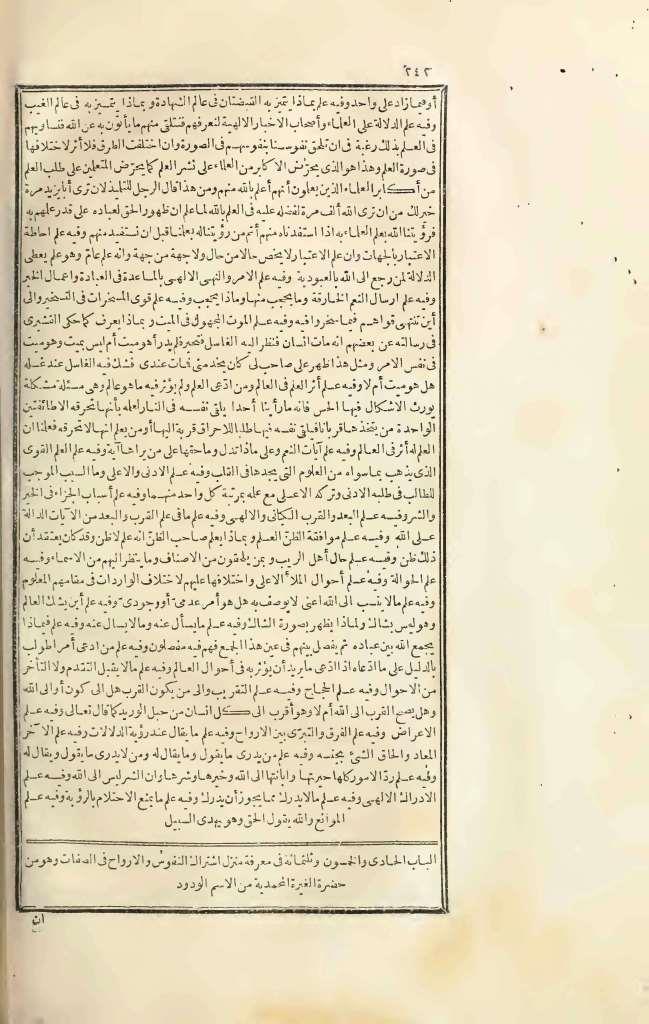 ٢٤٢
أو فيما زاد على واحد وفيه علم بماذا يتميز به القبضتان في عالم الشهادة وبماذا يتميز به في عالم الغيب
وفيه علم الدلالة على العلماء وأصحاب الاخبار الالهية لنعرفهم فنتلقى منهم ما يأتون به عن الله فنساويهم
في العلم بذلك رغبة في ان تلحق نفوسنا بنفوسهم في الصورة وان اختلفت الطرق فلا أثر لاختلافها
في صورة العلم وهذا هو الذي يحرّض الاكابر من العلماء على نشر العلم كما يحرّض المتعلمين على طلب العلم
من أكابر العلماء الذين يعلمون أنهم أعلم بالله منهم ومن هذا قال الرجل للتلميذ لان ترى أبا يزيد مرة
خير لك من ان ترى الله ألف مرة لفضله عليه في العلم بالله لما علم ان ظهور الحق لعباده على قدر علمهم به
فرؤيتنا الله بعلم العلماء به اذا استفدناه منهم أتم من رؤيتنا له بعلمنا قبل ان نستفيد منهم وفيه علم احاطة
الاعتبار بالجهات وان علم الاعتبار لا يختص حالا من حال ولا جهة من جهة وانه علم عامّ وهو علم يعطى
الدلالة لمن رجع الى الله بالعبودية وفيه علم الامر والنهى الالهى بالمساعدة في العبادة واعمال الخير
وفيه علم ارسال النعم الخارقة وما يحجب منها وماذا يحجب وفيه علم قوى المسخرات في التسخير والى
أين تنتهى قواهم فيما سخروا فيه وفيه علم الموت المجهول في الميت وبماذا يعرف كما حكى القشيرى
في رسالته عن بعضهم انه مات انسان فنظر اليه الغاسل فتحير فلم يدر أهو ميت أم ليس بميت وهو ميت
في نفس الامر ومثل هذا ظهر على صاحب لى كان يخدمنى فمات عندى فشك فيه الغاسل عند غسله
هل هو ميت أم لا وفيه علم أثر العلم في العالم ومن ادّعى العلم ولم يؤثر فيه ما هو عالم وهى مسئلة مشكلة
يورث الاشكال فيها الحس فانه ما رأينا أحدا يلقى نفسه في النار لعلمه بأنها تحرقه الا طائفتين
الواحدة من يتخذها قربانا فيلقى نفسه فيها طلبا للاحراق قربة اليها أو من يعلم انها لا تحرقه فعلمنا ان
العلم له أثر في العالم وفيه علم آيات النعم وعلى ماذا تدل وما حقها على من يراها آية وفيه علم العلم القوى
الذى يذهب بما سواه من العلوم التى يجدها في القلب وفيه علم الادنى والاعلى وما السبب الموجب
للطالب في طلبه الادنى وتركه الاعلى مع علمه بمرتبة كل واحد منهما وفيه علم أسباب الجزاء في الخير
والشر وفيه علم البعد والقرب الكيانى والالهى وفيه علم ما في علم القرب والبعد من الآيات الدالة
على الله وفيه علم موافقة الظنّ العلم وبماذا يعلم صاحب الظنّ انه علم لا ظن وقد كان يعتقد أن
ذلك ظن وفيه علم حال أهل الريب وبمن يلحقون من الاصناف وما ينظر اليهم من الاسماء وفيه
علم الحوالة وفيه علم أحوال الملأ الاعلى واختلافها عليهم لاختلاف الواردات في مقامهم المعلوم
وفيه علم ما لا ينسب الى الله اعنى لا يوصف به هل هو أمر عدمى أو وجودى وفيه علم أين يشك العالم
وهو ليس بشاك ولماذا يظهر بصورة الشاك وفيه علم ما يسأل عنه وما لا يسأل عنه وفيه علم فيماذا
يجمع الله بين عباده ثم يفصل بينهم في عين هذا الجمع فهم فيه مفصلون وفيه علم من ادعى أمرا طولب
بالدليل على ما ادّعاه اذا ادّعى ما يريد أن يؤثر به في أحوال العالم وفيه علم ما لا يقبل التقدم ولا التأخر
من الاحوال وفيه علم الحجاج وفيه علم التقريب والى من يكون القرب هل الى كون أو الى الله
وهل يصح القرب الى الله أم لا وهو أقرب الى كل انسان من حبل الوريد كما قال تعالى وفيه علم
الاعراض وفيه علم الفرق والتبرّى بين الارواح وفيه علم ما يقال عند رؤية الدلالات وفيه علم الآخر
المعاد والحاق الشئ بجنسه وفيه علم من يدرى ما يقول وما يقال له ومن لا يدرى ما يقول ويقال له
وفيه علم ردّ الامور كلها حيرتها وابانتها الى الله وخيرها وشرها وان الشر ليس الى الله وفيه علم
الادراك الالهى وفيه علم ما لا يدرك مما يجوز أن يدرك وفيه علم ما يمنع الاحتلام بالرؤية وفيه علم
الموانع والله يقول الحق وهو يهدى السبيل
الباب الحادى والخمسون وثلثمائة في معرفة منزل اشتراك النفوس والارواح في الصفات وهو من
حضرة الغيرة المحمدية من الاسم الودود
ان